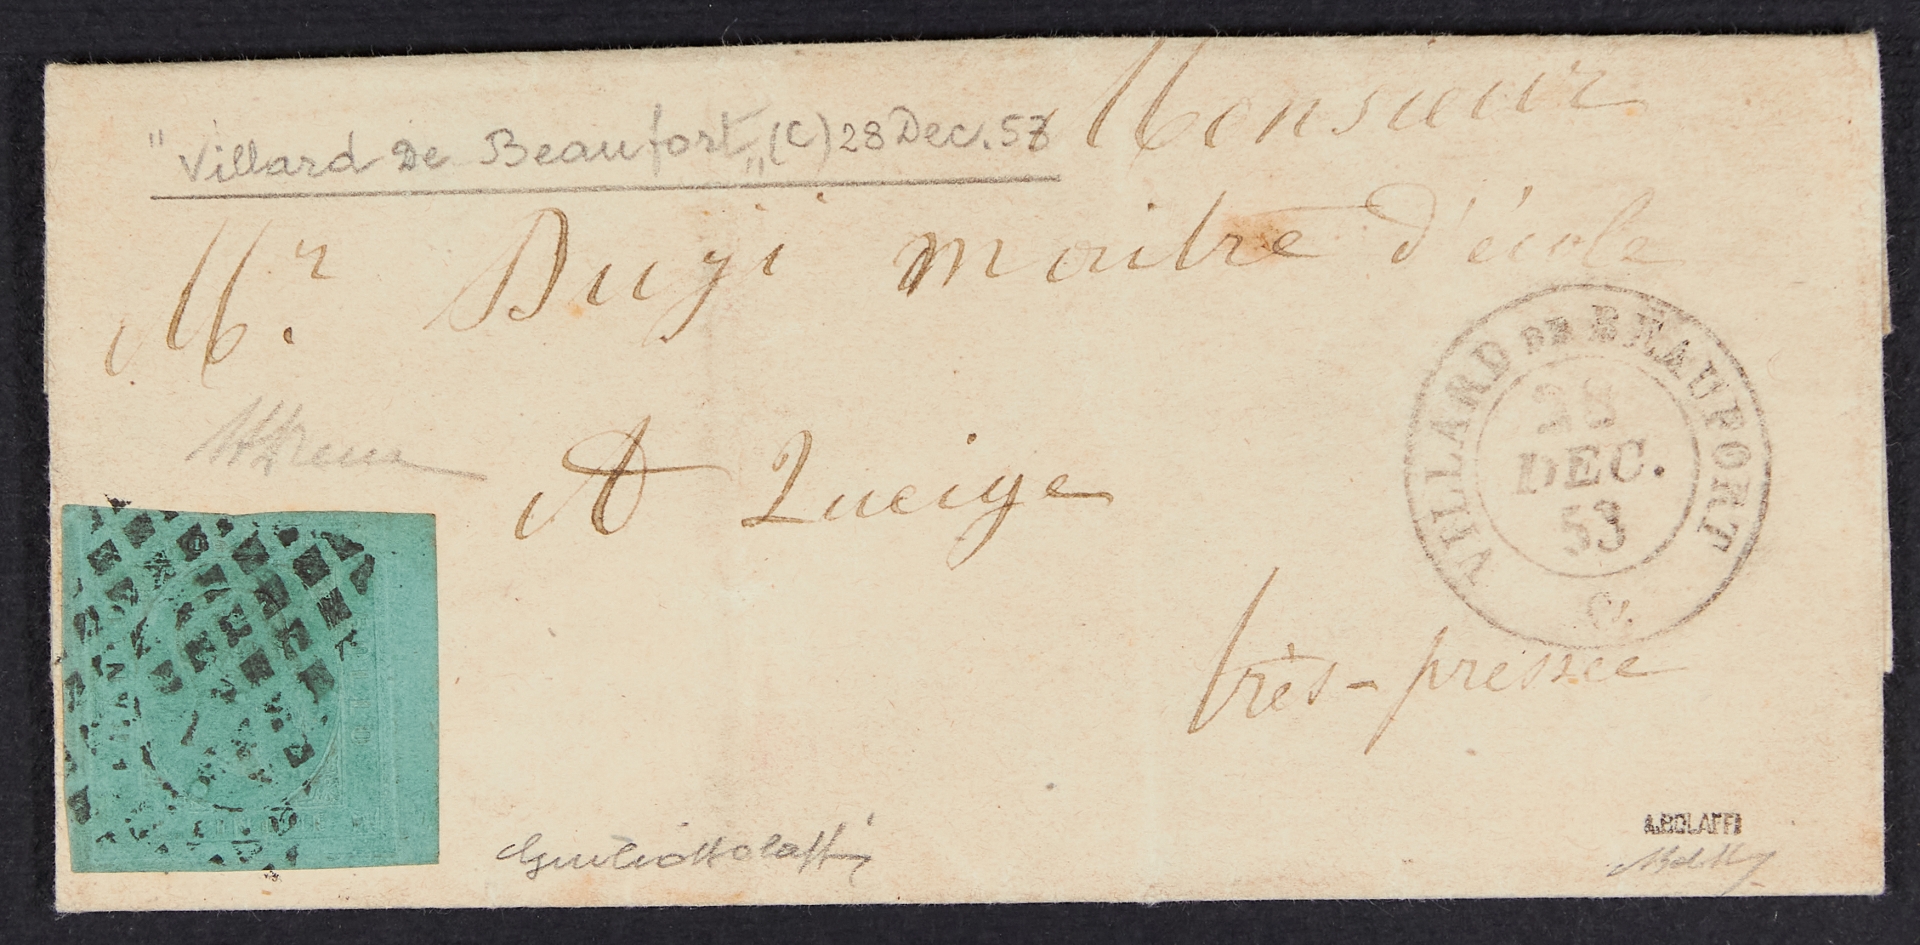 Monsieur
"Villard De Beaufort" (C) 28 Dec. 53
Mr. Duji maitre d'école
A Queige
très-pressée
VILLARD DE BEAUFORT
28
DEC.
53
C.
Giulio Bolaffi
A.BOLAFFI